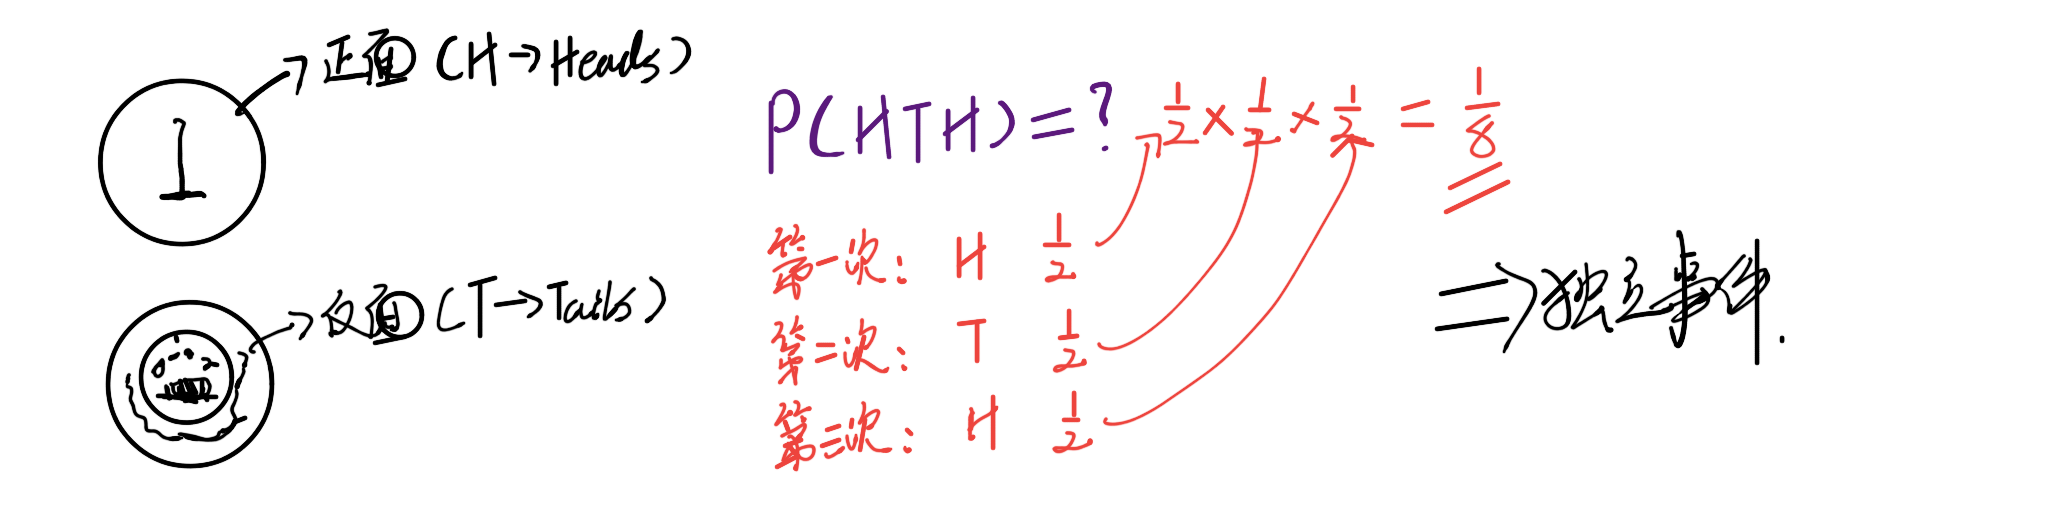 正面 (H→Heads)
1
反面 (T→Tails)
P(HTH)=? 1/2 × 1/2 × 1/2 = 1/8
第一次: H 1/2
第二次: T 1/2
第三次: H 1/2
⇒独立事件.